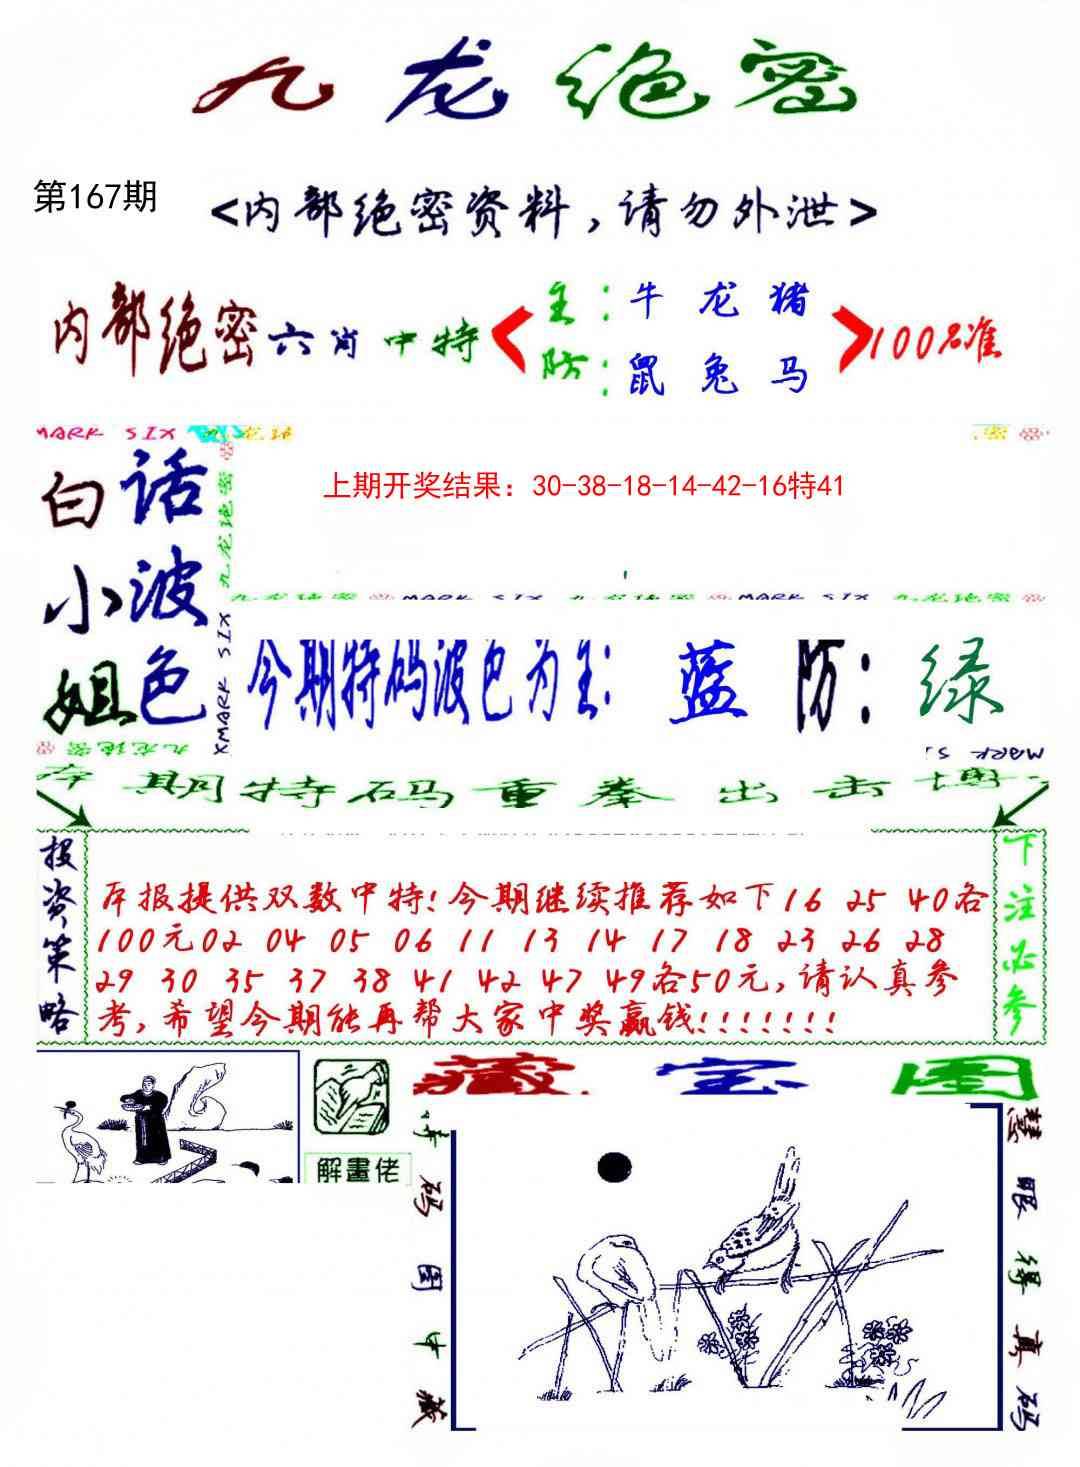 九龙绝密
第167期
<内部绝密资料,请勿外泄>
内部绝密六肖中特
主:牛 龙 猪
防:鼠 兔 马
100%准
MARK SIX 九龙绝
密
九龙绝密
白话
小波
姐色
上期开奖结果：30-38-18-14-42-16特41
九龙绝密 MARK SIX 九龙绝密 MARK SIX 九龙绝密
MARK SIX
今期特码波色为主: 蓝 防: 绿
九龙绝密
MARK SI
本期特码重拳出击博
投资策略
本报提供双数中特!今期继续推荐如下16 25 40各
100元02 04 05 06 11 13 14 17 18 23 26 28
29 30 35 37 38 41 42 47 49各50元,请认真参
考,希望今期能再帮大家中奖赢钱!!!!!!!
下注必参
解畫佬
藏宝图
奇码图中藏
慧眼缘真码